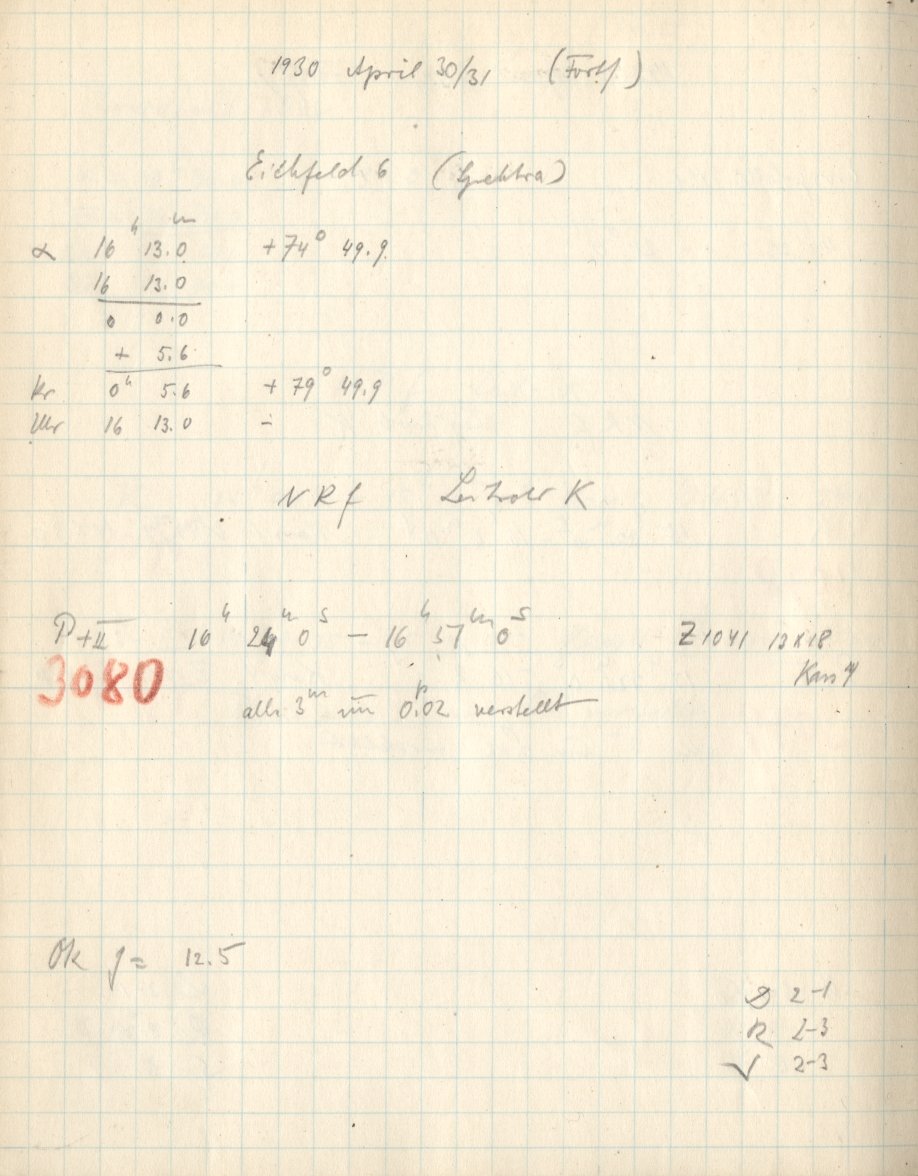 1930 April 30/31 (Forts)
Eichfeld 6 (Spektra)
α 16ʰ 13.0ᵐ +74° 49.9
16 13.0
0 0.0
+ 5.6
Kr 0ʰ 5.6 +79° 49.9
Uhr 16 13.0 -
NRf K
P+II 16ʰ 24ᵐ 0ˢ — 16ʰ 57ᵐ 0ˢ Z1041 12x18
3080
alle 3ᵐ um 0ᵖ.02 verstellt
Ok g= 12.5
S 2-1
R 2-3
V 2-3